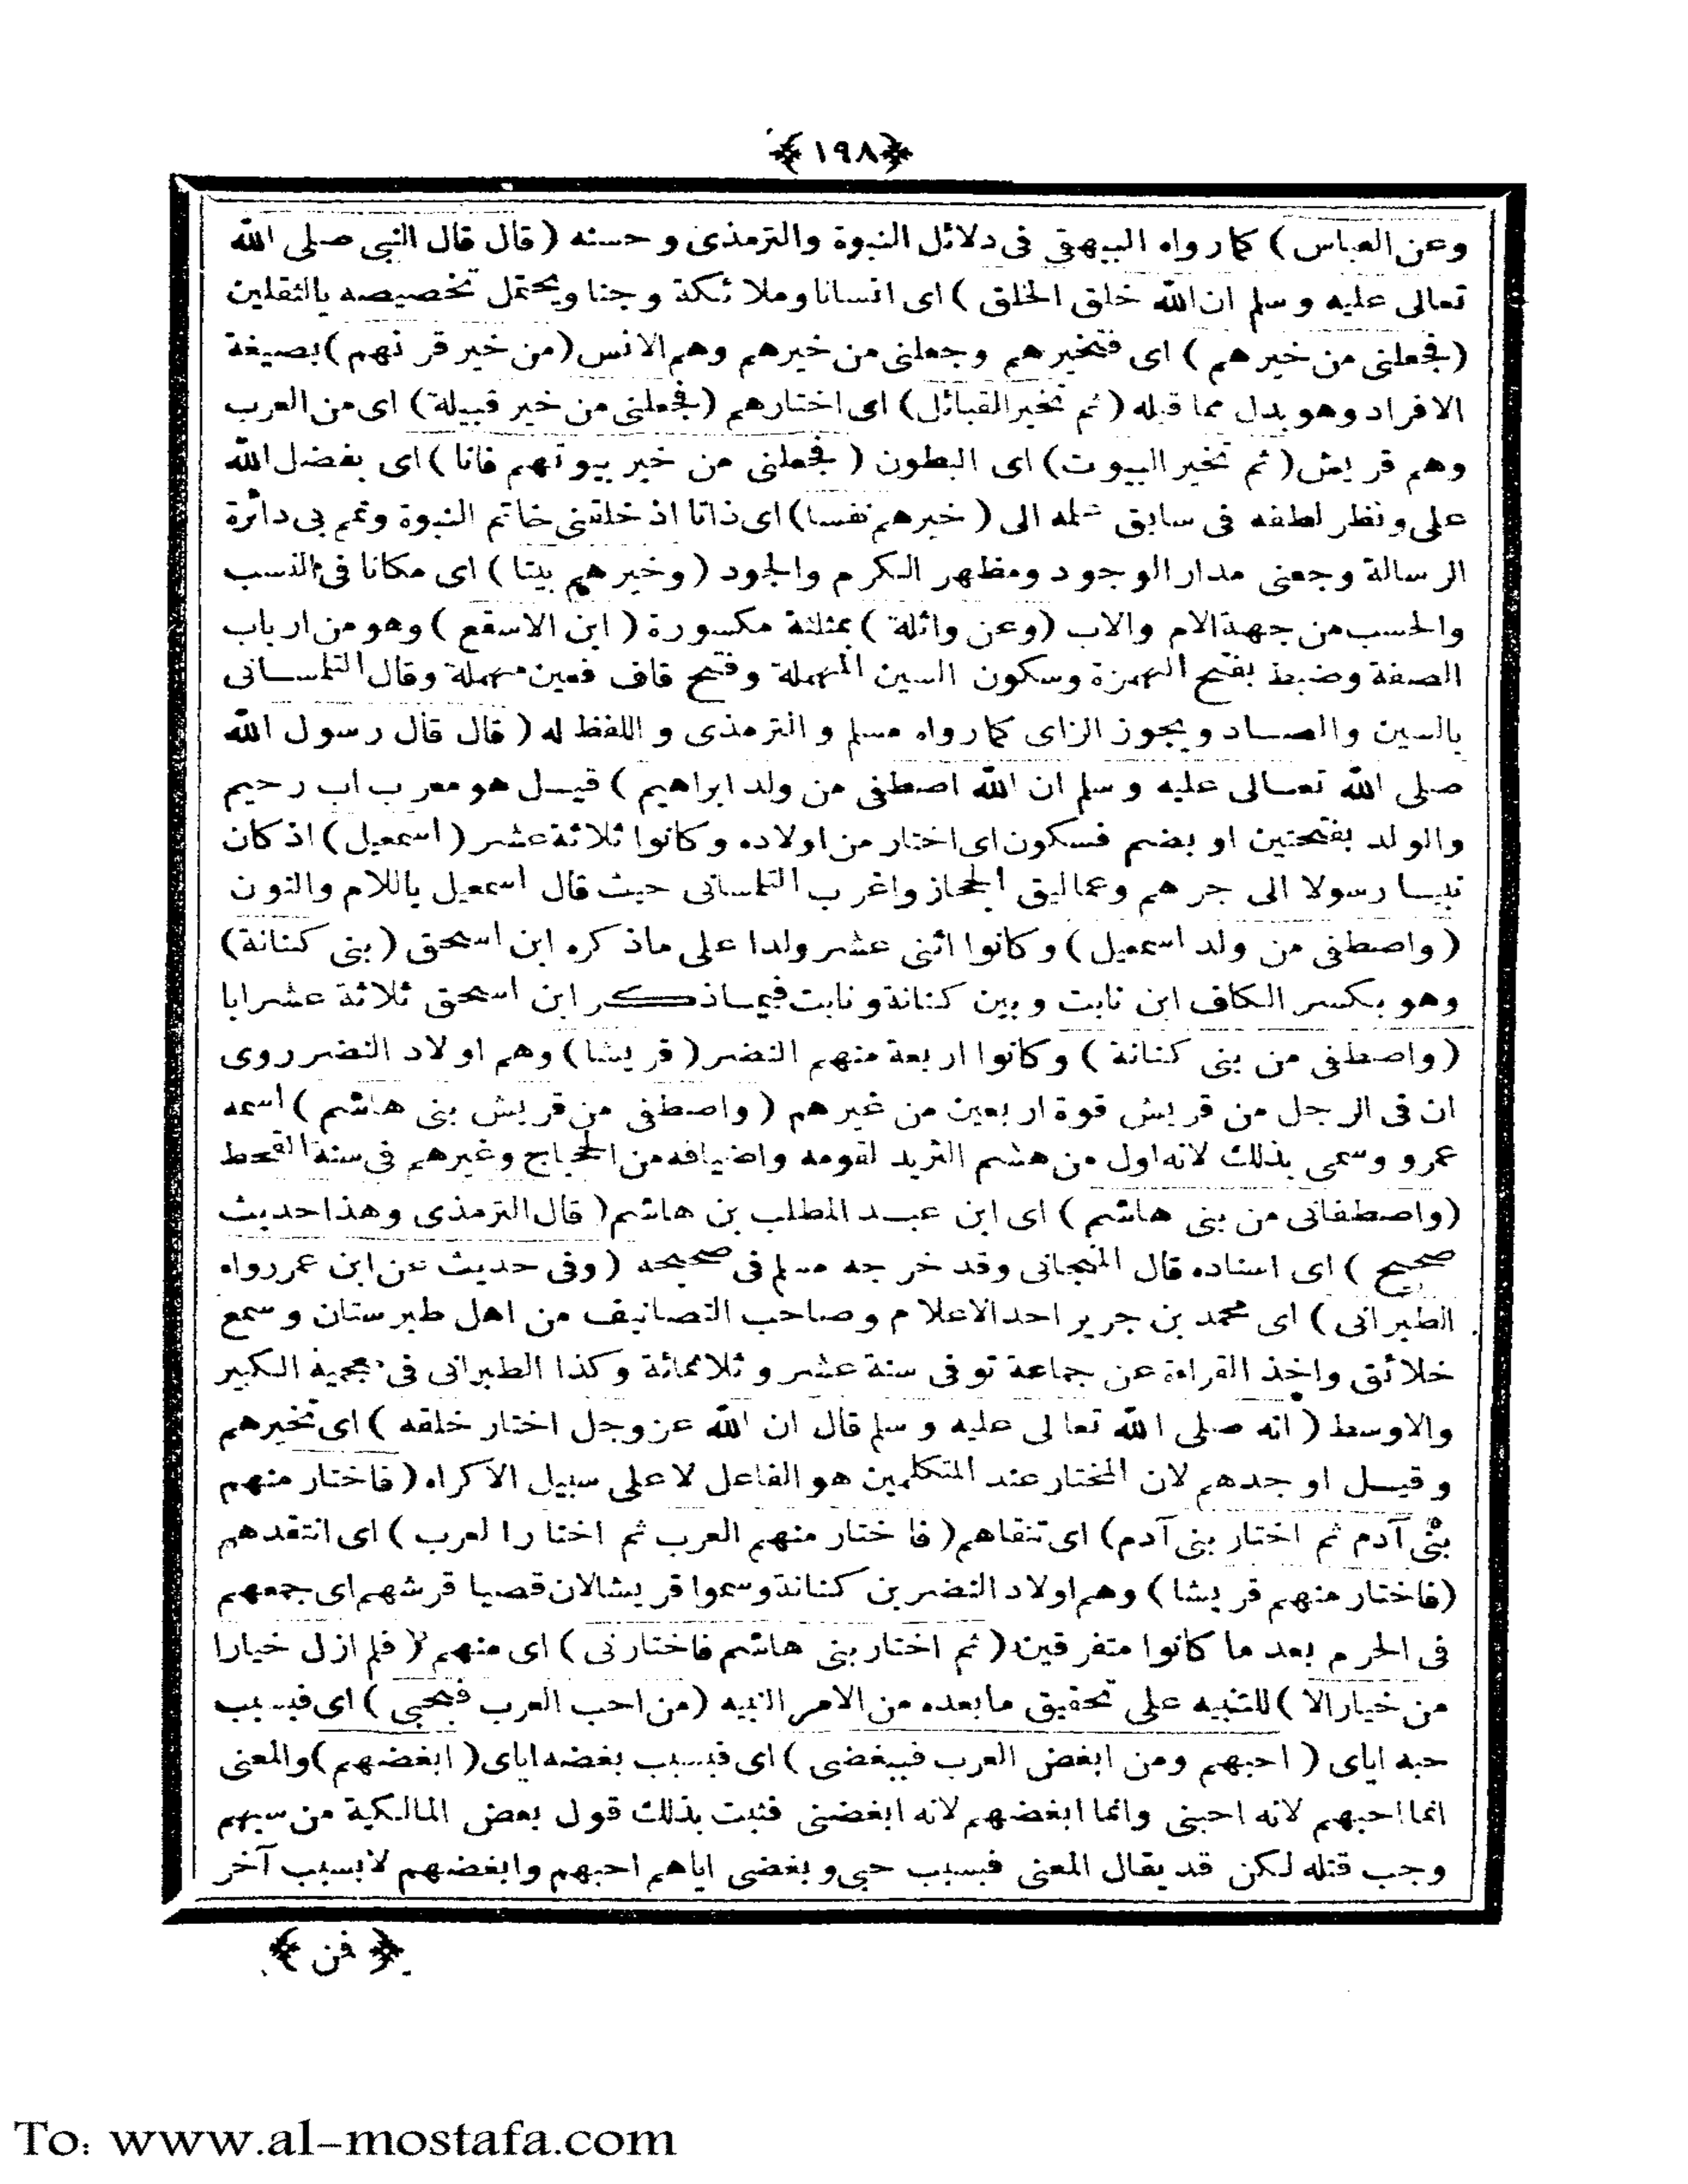 ﴿١٩٨﴾
وعن العباس) كما رواه البيهقي فى دلائل النبوة والترمذى وحسنه (قال قال النبى صلى الله
تعالى عليه وسلم ان الله خلق الخلق) اى انسانا وملائكة وجنا ويحتمل تخصيصه بالثقلين
(فجعلنى من خيرهم) اى فتخيرهم وجعلنى من خيرهم وهم الانس (من خير قرنهم) بصيغة
الافراد وهو بدل مما قبله (ثم تخير القبائل) اى اختارهم (فجعلنى من خير قبيلة) اى من العرب
وهم قريش (ثم تخير البيوت) اى البطون (فجعلنى من خير بيوتهم فانا) اى بفضل الله
على ونظر لطفه فى سابق علمه الى (خيرهم نفسا) اى ذاتا اذ خلقنى خاتم النبوة وتمم بى دائرة
الرسالة وجعنى مدار الوجود ومظهر الكرم والجود (وخيرهم بيتا) اى مكانا فى النسب
والحسب من جهة الام والاب (وعن واثلة) بمثلثة مكسورة (ابن الاسقع) وهو من ارباب
الصفة وضبط بفتح الهمزة وسكون السين المهملة وفتح قاف فعين مهملة وقال التلمسانى
بالسين والصاد ويجوز الزاى كما رواه مسلم والترمذى واللفظ له (قال قال رسول الله
صلى الله تعالى عليه وسلم ان الله اصطفى من ولد ابراهيم) قيل هو معرب اب رحيم
والولد بفتحتين او بضم فسكون اى اختار من اولاده وكانوا ثلاثة عشر (اسمعيل) اذ كان
نبيا رسولا الى جرهم وعماليق الحجاز واغرب التلمسانى حيث قال اسمعيل باللام والنون
(واصطفى من ولد اسمعيل) وكانوا اثنى عشر ولدا على ماذكره ابن اسحق (بنى كنانة)
وهو بكسر الكاف ابن نابت وبين كنانة ونابت فيما ذكر ابن اسحق ثلاثة عشر ابا
(واصطفى من بنى كنانة) وكانوا اربعة منهم النضر (قريشا) وهم اولاد النضر روى
ان فى الرجل من قريش قوة اربعين من غيرهم (واصطفى من قريش بنى هاشم) اسمه
عمرو وسمى بذلك لانه اول من هشم الثريد لقومه واضيافه من الحجاج وغيرهم فى سنة القحط
(واصطفانى من بنى هاشم) اى ابن عبد المطلب بن هاشم (قال الترمذى وهذا حديث
صحيح) اى اسناده قال المنجانى وقد خرجه مسلم فى صحيحه (وفى حديث عن ابن عمر رواه
الطبرانى) اى محمد بن جرير احد الاعلام وصاحب التصانيف من اهل طبرستان وسمع
خلائق واخذ القراءة عن جماعة توفى سنة عشر وثلاثمائة وكذا الطبرانى فى معجميه الكبير
والاوسط (انه صلى الله تعالى عليه وسلم قال ان الله عز وجل اختار خلقه) اى تخيرهم
وقيل اوجدهم لان المختار عند المتكلمين هو الفاعل لا على سبيل الاكراه (فاختار منهم
بنى آدم ثم اختار بنى آدم) اى تنقاهم (فاختار منهم العرب ثم اختار العرب) اى انتقدهم
(فاختار منهم قريشا) وهم اولاد النضر بن كنانة وسموا قريشا لان قصيا قرشهم اى جمعهم
فى الحرم بعد ما كانوا متفرقين (ثم اختار بنى هاشم فاختارنى) اى منهم (فلم ازل خيارا
من خيار الا) للتنبيه على تحقيق ما بعده من الامر النبيه (من احب العرب فبحبى) اى فبسبب
حبه اياى (احبهم ومن ابغض العرب فببغضى) اى فبسبب بغضه اياى (ابغضهم) والمعنى
انما احبهم لانه احبنى وانما ابغضهم لانه ابغضنى فثبت بذلك قول بعض المالكية من سبهم
وجب قتله لكن قد يقال المعنى فبسبب حبى وبغضى اياهم احبهم وابغضهم لا بسبب آخر
﴿فن﴾
To: www.al-mostafa.com